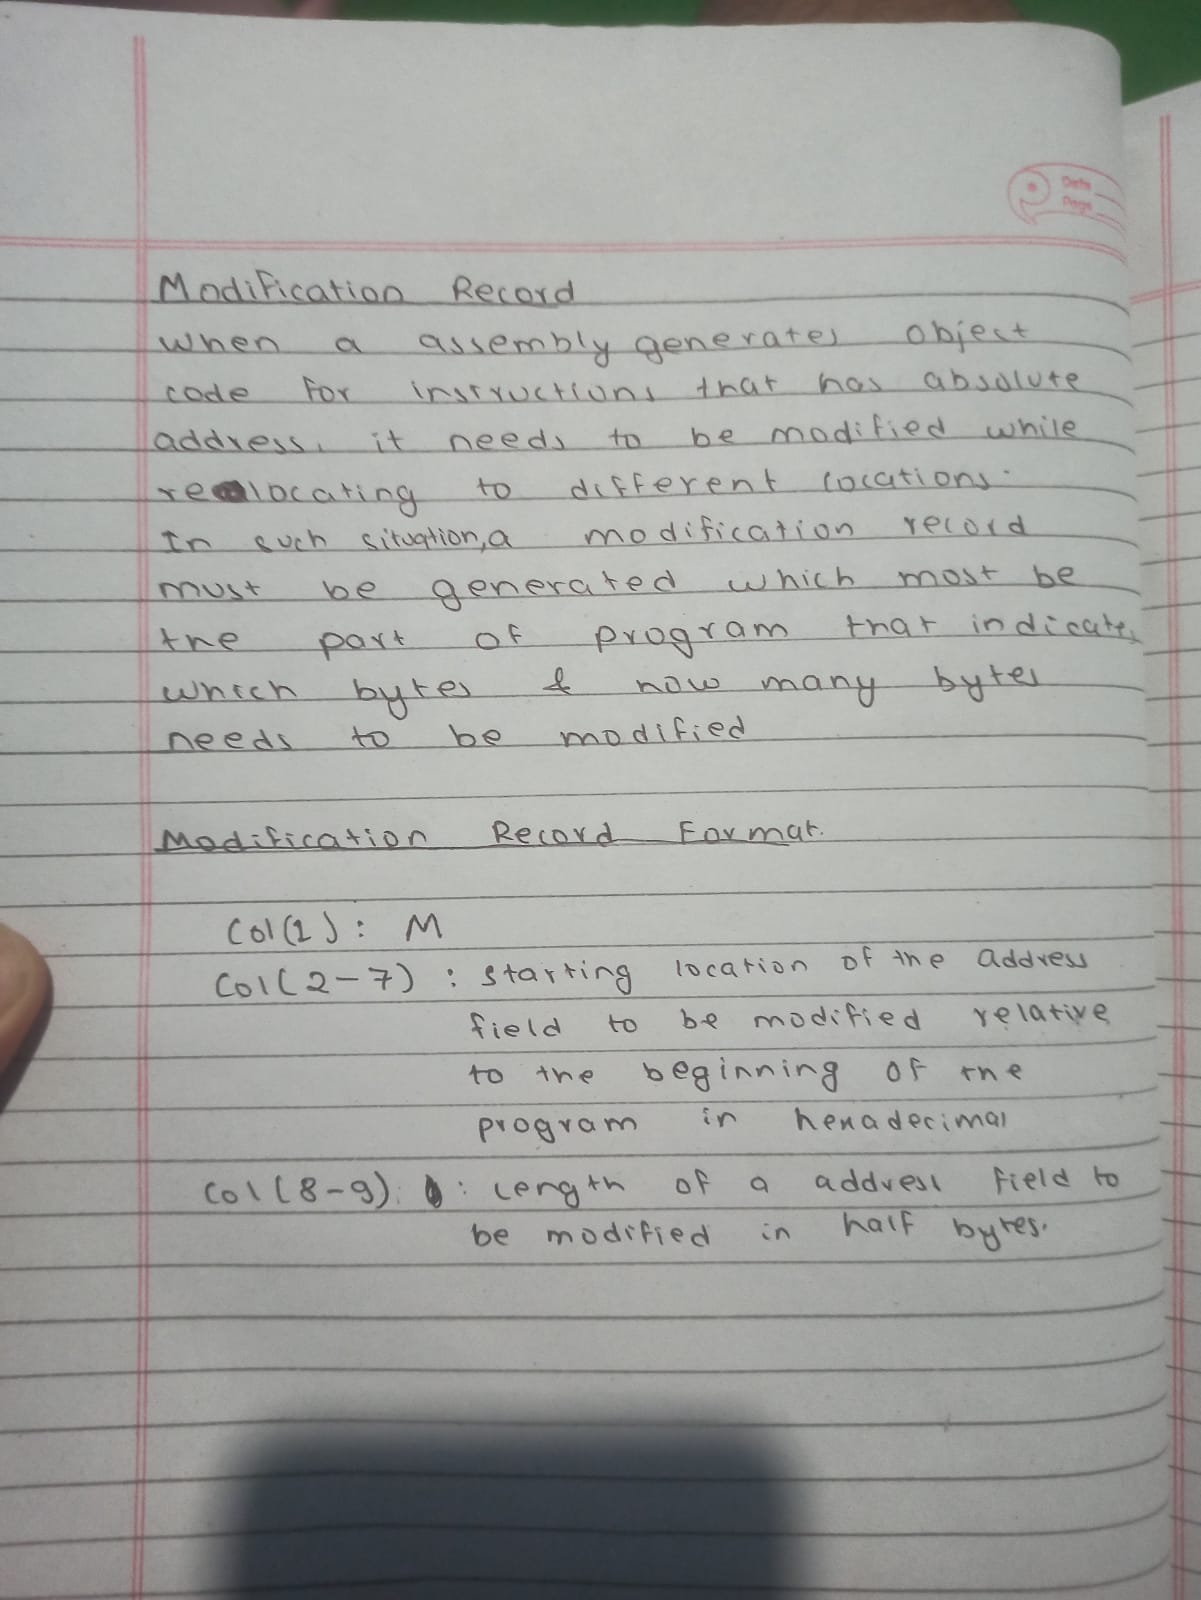 Date
Page
Modification Record
when a assembly generates object
code for instructions that has absolute
address, it needs to be modified while
relocating to different locations.
In such situation, a modification record
must be generated which most be
the part of program that indicates
which bytes & how many bytes
needs to be modified
Modification Record Format.
Col(1): M
Col(2-7): starting location of the address
field to be modified relative
to the beginning of the
program in hexadecimal
Col(8-9): : Length of a address field to
be modified in half bytes.